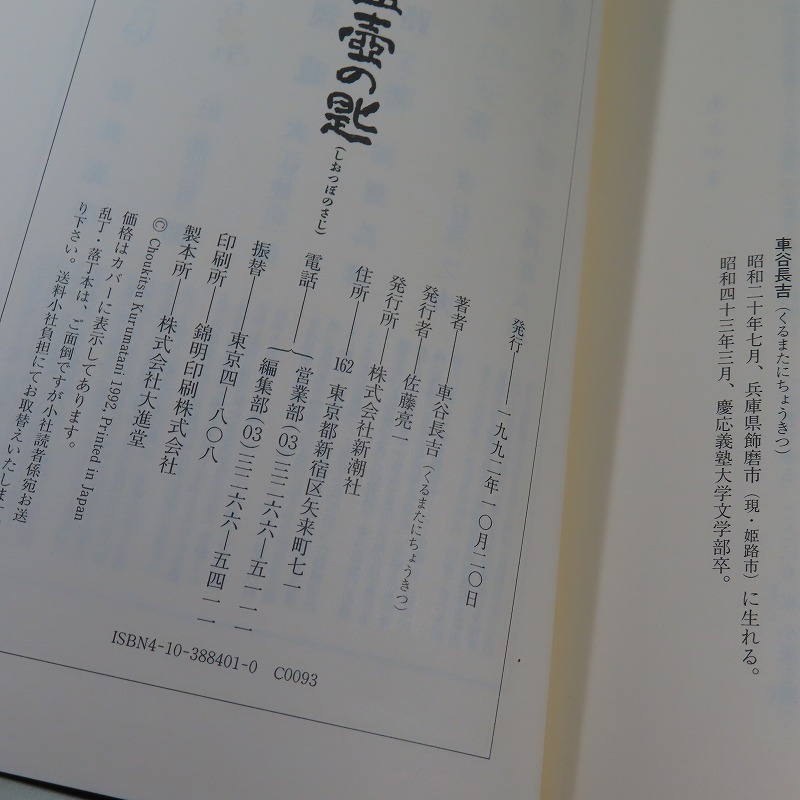 車谷長吉(くるまたにちょうきつ)
昭和二十年七月、兵庫県飾磨市(現・姫路市)に生れる。
昭和四十三年三月、慶応義塾大学文学部卒。
壺の匙
(しおつぼのさじ)
発行──一九九二年一〇月二〇日
著者──車谷長吉(くるまたにちょうきつ)
発行者──佐藤亮一
発行所──株式会社新潮社
住所──162 東京都新宿区矢来町七一
電話──営業部(03)三二六六─五一一一
編集部(03)三二六六─五四一一
振替──東京四─八〇八
印刷所──錦明印刷株式会社
製本所──株式会社大進堂
© Choukitsu Kurumatani 1992, Printed in Japan
価格はカバーに表示してあります。
乱丁・落丁本は、ご面倒ですが小社読者係宛お送
り下さい。送料小社負担にてお取替えいたします
ISBN4-10-388401-0 C0093